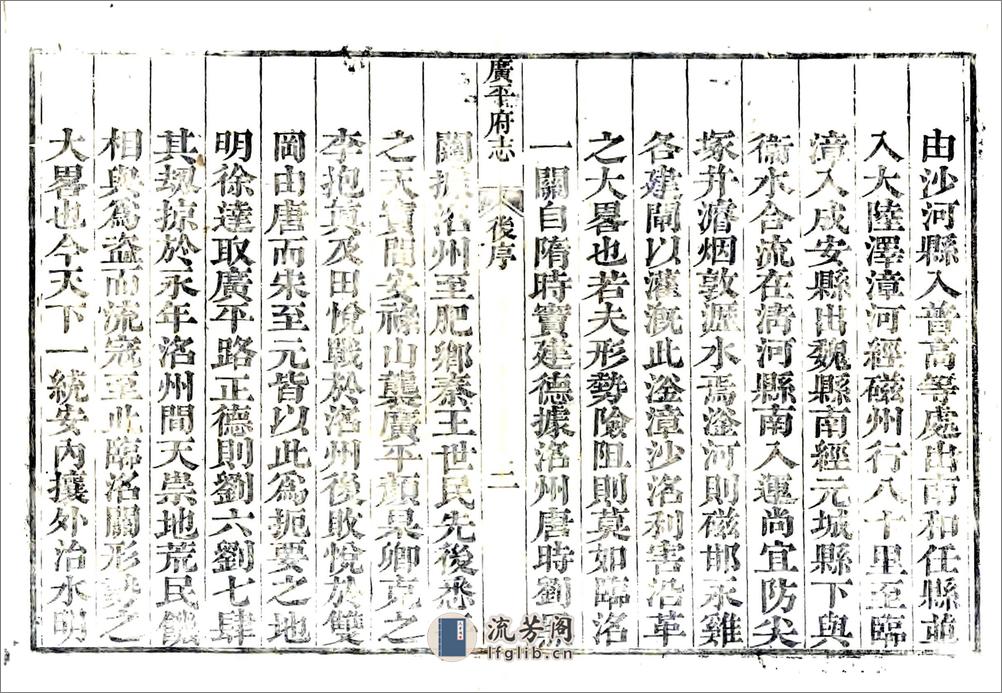 由沙河縣入普高等處出南和任縣並
入大陸澤漳河經磁州行八十里至臨
漳入成安縣出魏縣南經元城縣下與
衞水合流在淸河縣南入運尚宜防尖
塚井灣烟敦源水焉滏河則磁邯永雞
各建閘以灌漑此滏漳沙洺利害沿革
之大畧也若夫形勢險阻則莫如臨洺
一關自隋時竇建德據洺州唐時劉
闥據洺州至肥鄉秦王世民先後悉
之天寶間安祿山襲廣平顏杲卿克之
李抱真及田悅戰於洺州後敗悅於雙
岡由唐而宋至元皆以此爲扼要之地
明徐達取廣平路正德則劉六劉七肆
其刼掠於永年洺州間天祟地荒民饑
相與爲盜而流寇至此臨洺關形勢之
大畧也今天下一統安內攘外治水明
廣平府志 後序 二
流芳閣
lfglib.cn